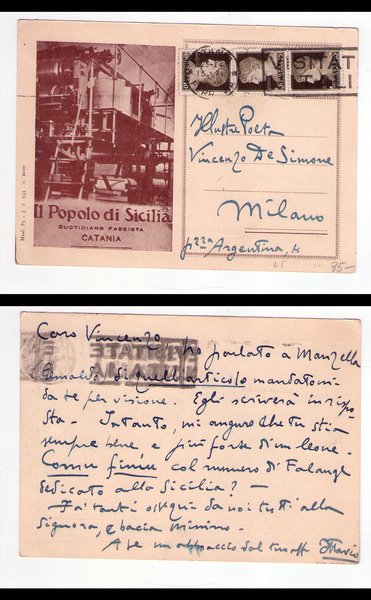 Il Popolo di Sicilia
QUOTIDIANO FASCISTA
CATANIA
Illustre Poeta
Vincenzo De Simone
Milano
p.zza Argentina, 4
75-
Caro Vincenzo, ho parlato a Manzella
di quell'articolo mandatomi
da te per visione. Egli scriverà in rispo
sta - Intanto, mi auguro che tu stia
sempre bene e più forte di un leone.
Comu finiu col numero di Falange
dedicato alla Sicilia? -
Fa' tanti ossequi da noi tutti alla
Signora, e bacia Mimmo.
A te un abbraccio dal tuo aff